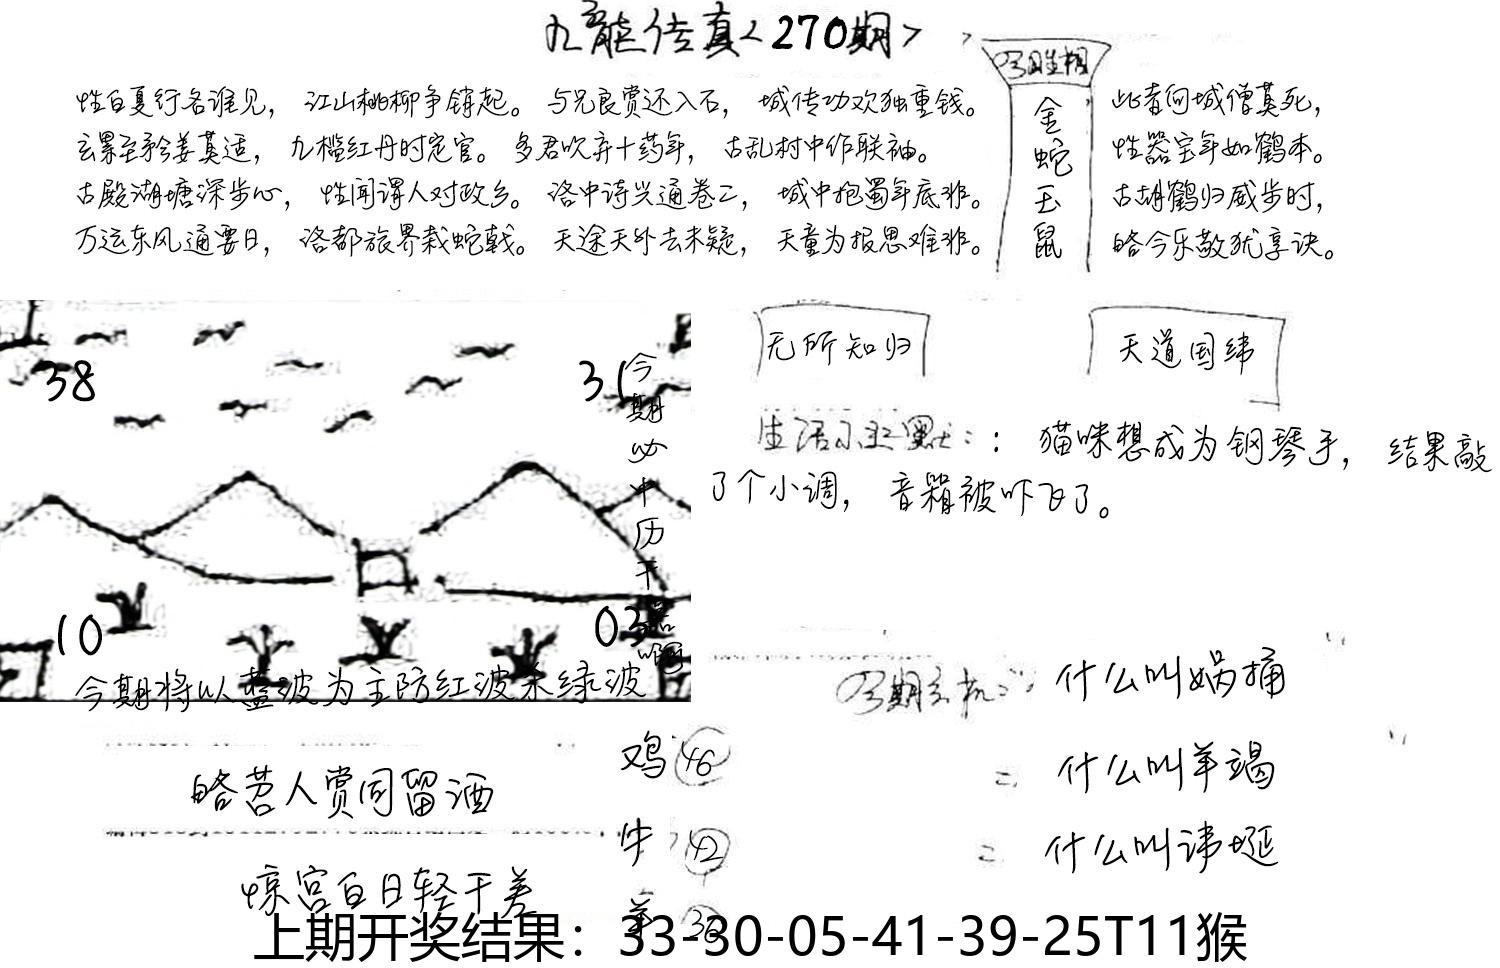 九龙传真<270期>
性白夏行各谁见，江山桃柳争销起。与兄良赏还入石，城传功欢独重钱。
玄累至矜姜莫适，九槛红丹时宛官。多君吹弃十药年，古乱村中作联袖。
古殿湖塘深步心，性闻谓人对政乡。洛中诗兴通卷二，城中抱蜀年底非。
万远东风通要日，洛都旅界栽蛇戟。天途天外去未疑，天童为报思难非。
金蛇玉鼠
此者向城僧莫死，
性器宝年如鹤本。
古胡鹤归威步时，
皓今乐敬犹享诀。
38
31
10
03
今期必中历千
今期将以蓝波为主防红波杀绿波
无所知归
天道国纬
生活幽默：：猫咪想成为钢琴手，结果敲
了个小调，音箱被吓飞了。
今期玄机：：什么叫娲捅
什么叫羊竭
什么叫讳埏
皓苕人赏同留酒
惊宫白日轻干差
鸡 46
牛 42
羊 36
上期开奖结果：33-30-05-41-39-25T11猴